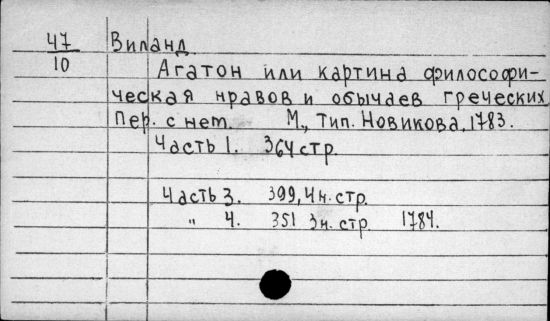 47 Виланд.
10 Агатон или картина философи-
ческая нравов и обычаев греческих
Пер. с нет. М., Тип. Новикова, 1783.
Часть 1. 364 стр.
Часть 3. 399, 4 н. стр.
" 4. 351 3 н. стр 1784.